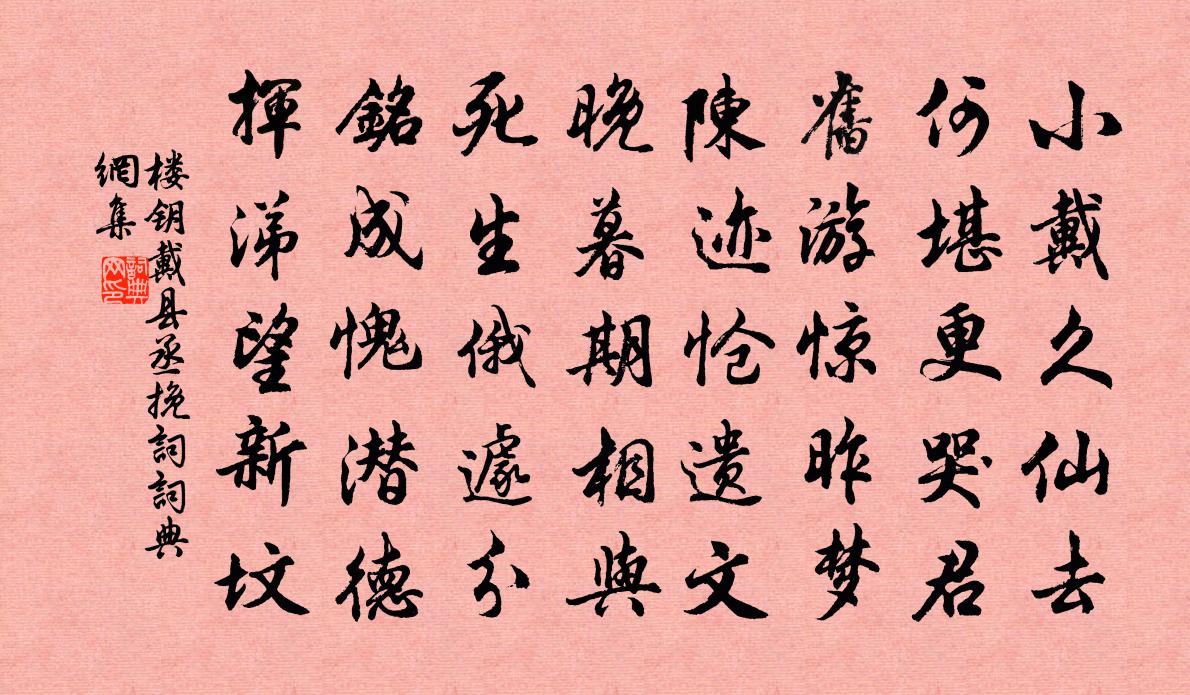 小戴久仙去
何堪更哭君
舊游惊昨梦
陳迹怆遗文
晚暮期相與
死生俄遽分
銘成愧潜德
揮涕望新坟
楼钥戴县丞挽詞詞典
網集
詞典
网印